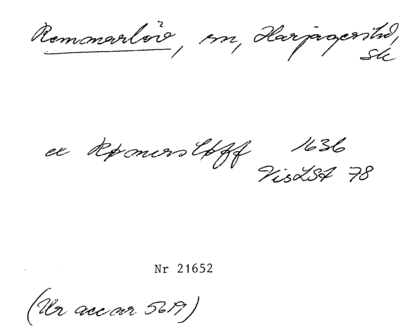 Remmarlöv, sn, Harjagers hd,
Sk
ex Rømersløff 1636
VisLSA 78
Nr 21652
(Ur accar 5619)